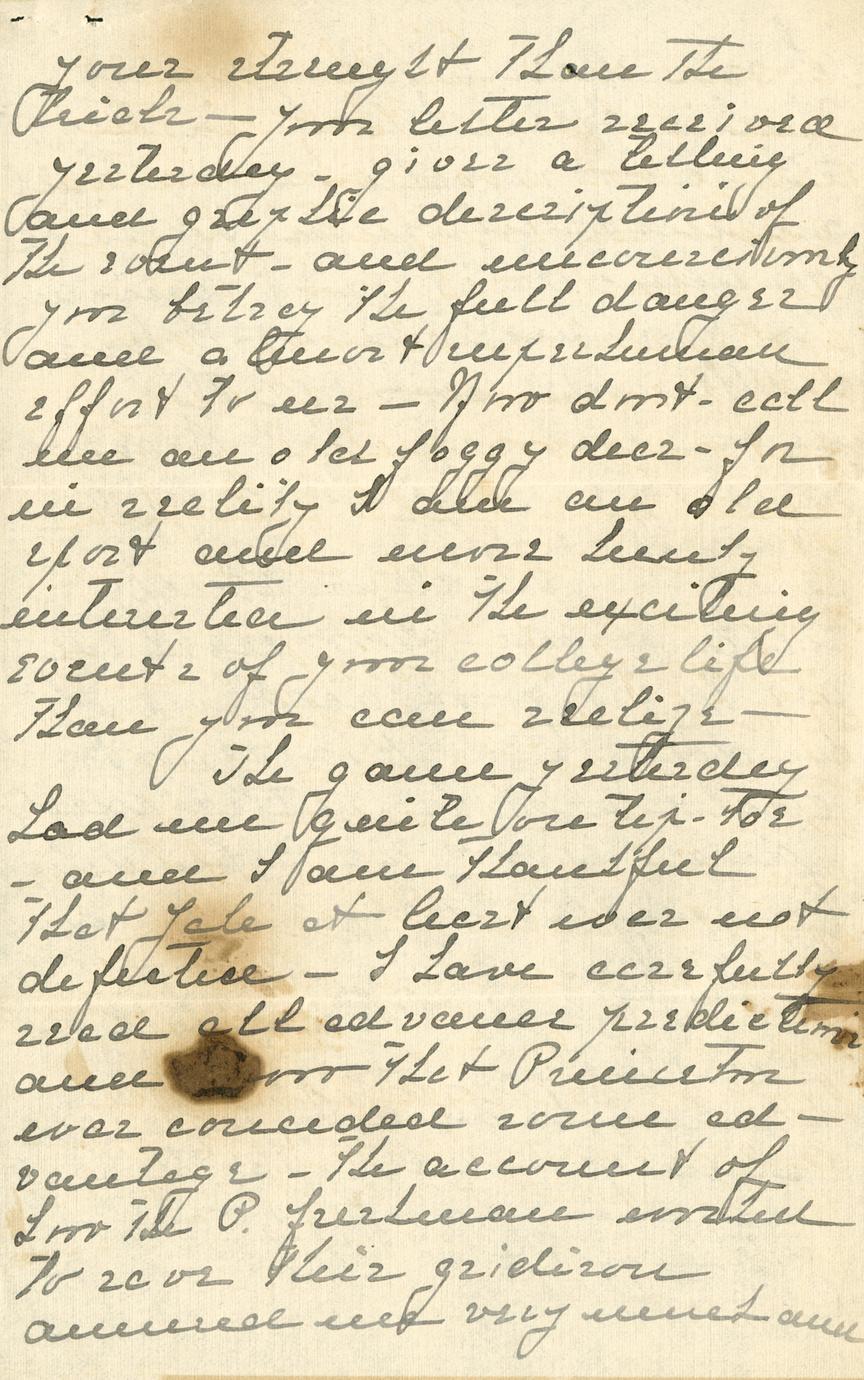 your strenght than the
— your letter received
yesterday - gives a telling
and graphic description of
the event - and unconsciously
you betray the full danger
and almost superhuman
effort to us — Now dont - call
me an old foggy dear - for
in reality I am an old
sport and more keenly
interested in the exciting
events of your college life
than you can realize —
The game yesterday
had me quite on tip-toe
- and I am thankful
that Yale at least was not
defeated — I have carefully
read all advance predictions
and know that Princeton
was conceded some ad —
vantage - the account of
how the P. freshman worked
to save their gridiron
amused me very much and